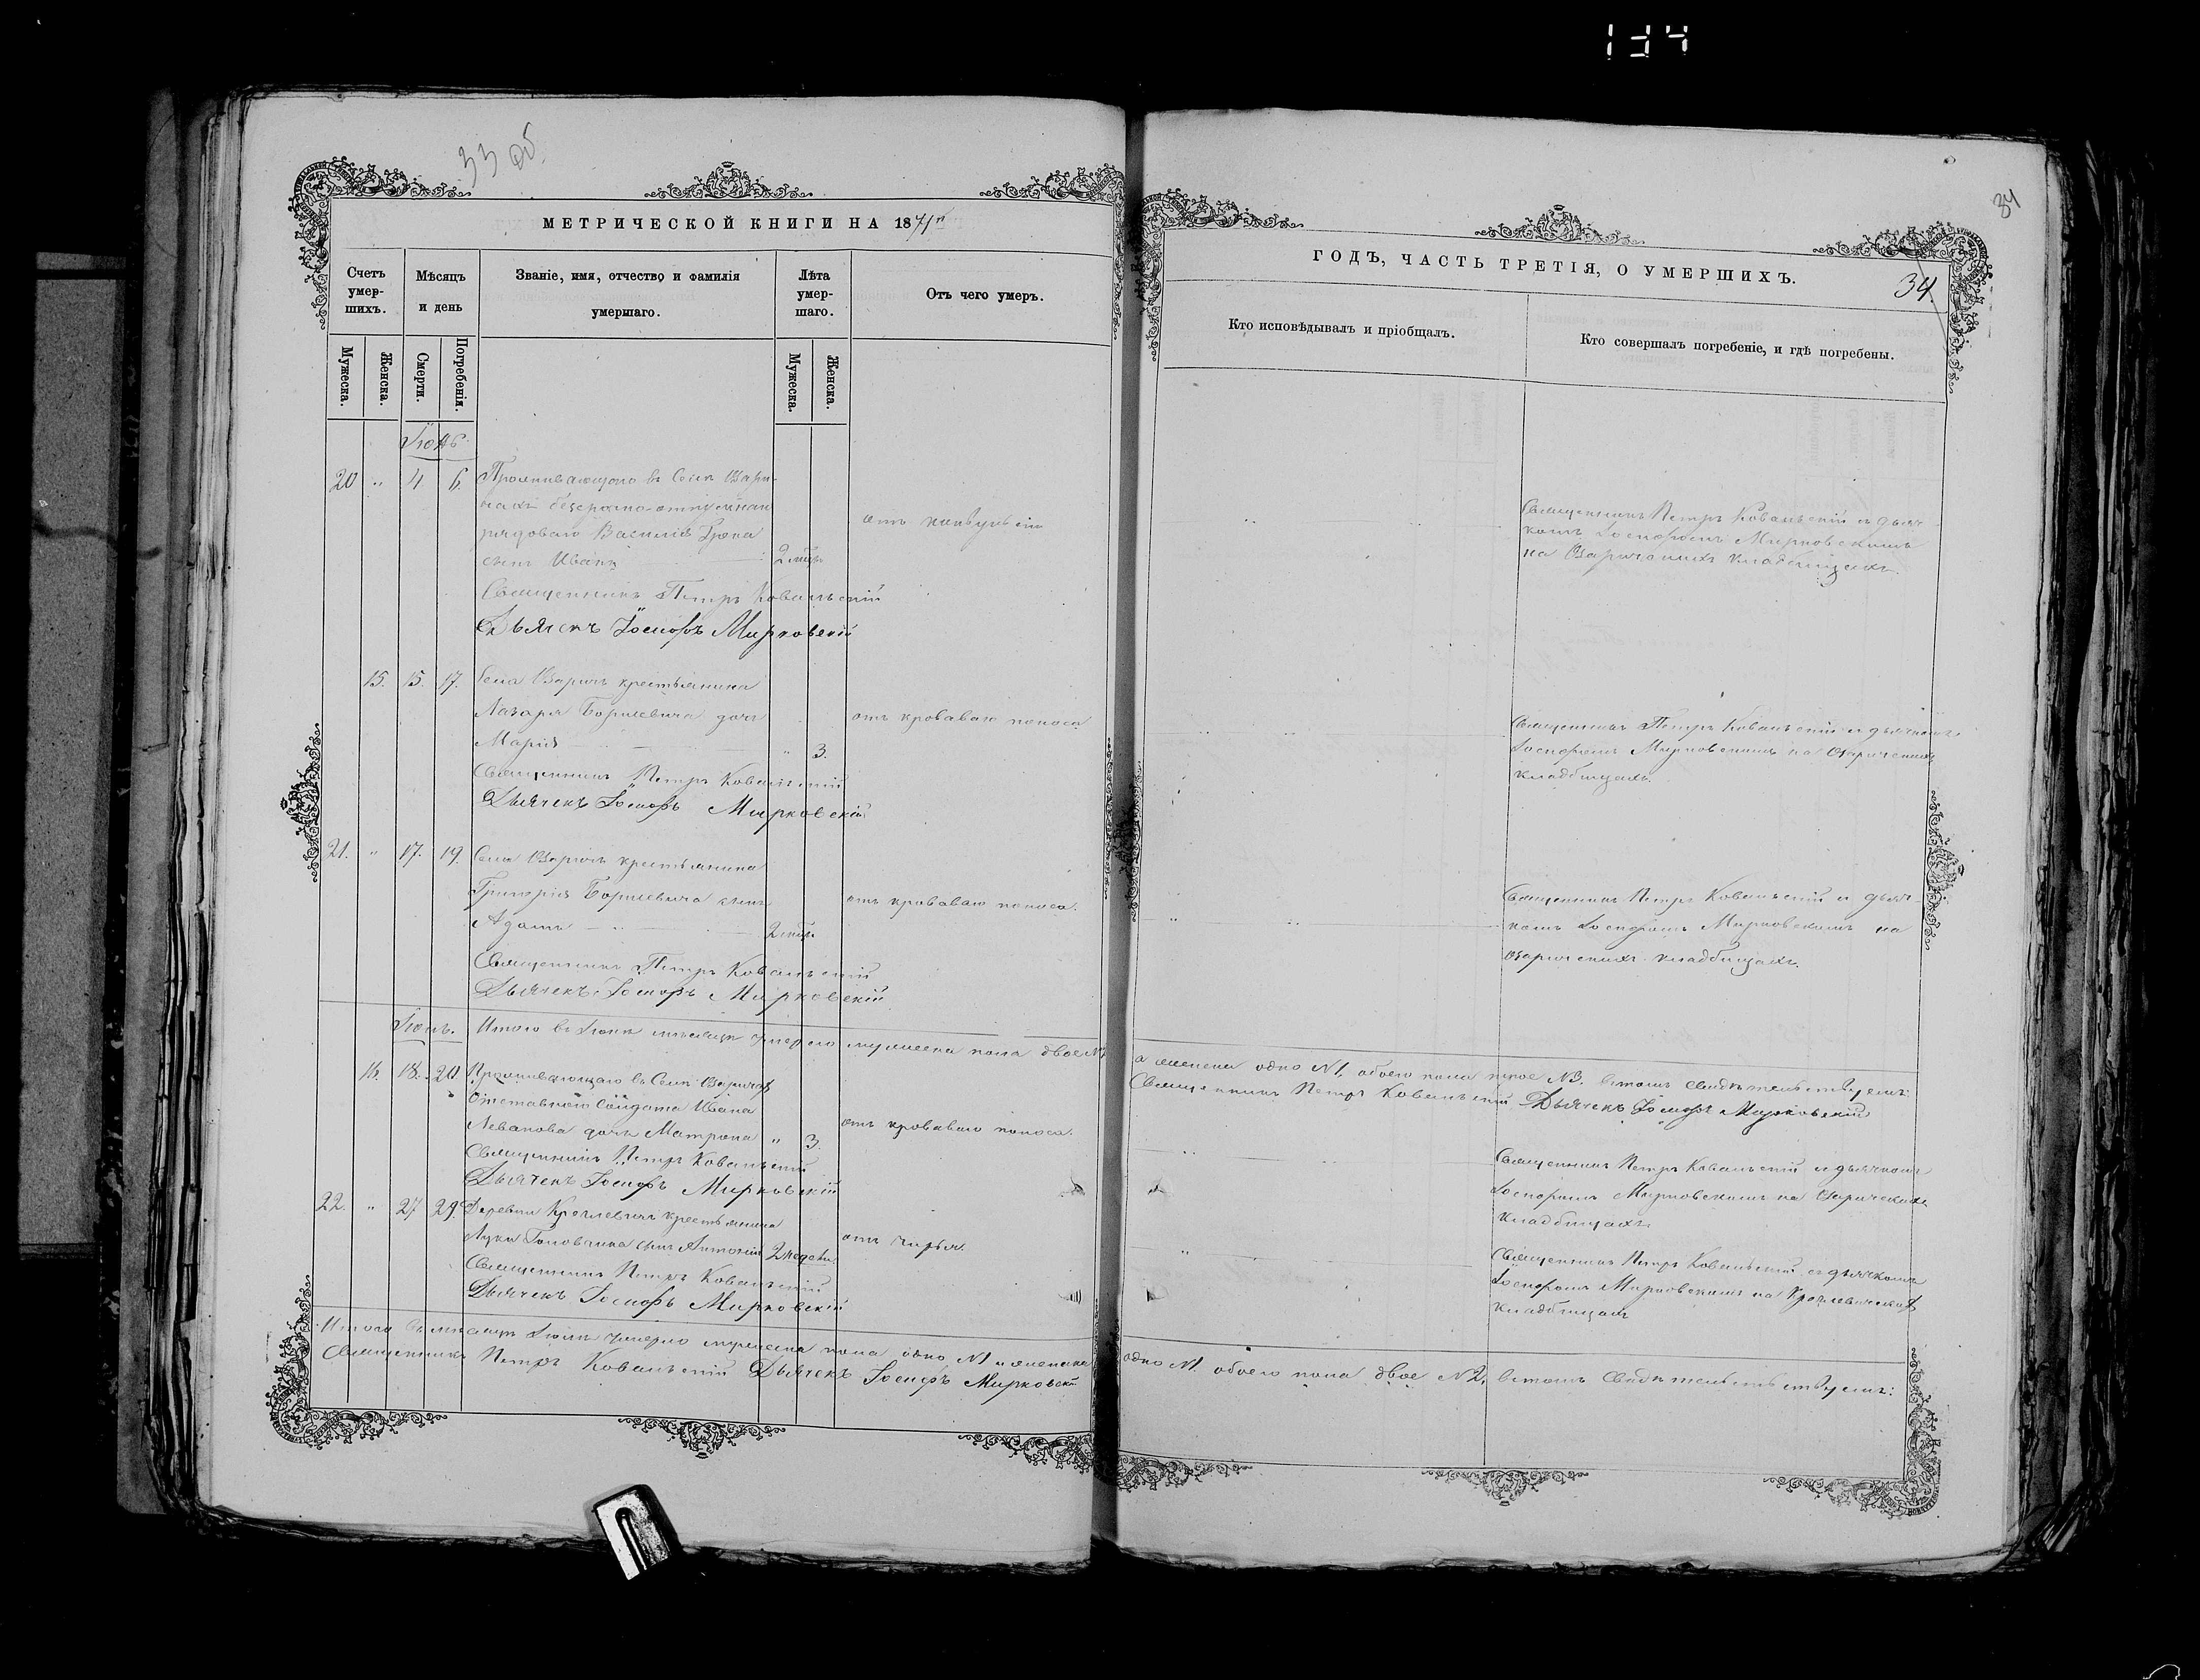 134
33 об.
МЕТРИЧЕСКОЙ КНИГИ НА 1871й
Счетъ умер-шихъ.
Мѣсяцъ и день
Званіе, имя, отчество и фамилія умершаго.
Лѣта умер-шаго.
Отъ чего умеръ.
Мужеска.
Женска.
Смерти.
Погребенія.
Мужеска.
Женска.
Іюнь
20 " 4 6. Проживающаго въ Селѣ Озари-
чахъ безсрочно-отпускнаго
рядоваго Василія
сынъ Иванъ 2 мѣс.
Священникъ Петръ Ковальскій
Дьячекъ Іосифъ Мирковскій
15. 15. 17. Села Озаричъ крестьянина
Лазаря Борисевича дочь
Марія " 3.
отъ кроваваго поноса
Священникъ Петръ Ковальскій
Дьячекъ Іосифъ Мирковскій
21. " 17. 19. Села Озаричъ крестьянина
Григорія Борисевича сынъ
Адамъ 2 мѣс.
отъ кроваваго поноса.
Священникъ Петръ Ковальскій
Дьячекъ Іосифъ Мирковскій
Итого въ Іюнѣ мѣсяцѣ умерло мужеска пола двое №2
Іюль.
16. 18. 20. Проживающаго въ Селѣ Озаричахъ
Отставнаго Солдата Ивана
Левакова дочь Матрона " 3.
отъ кроваваго поноса.
Священникъ Петръ Ковальскій
Дьячекъ Іосифъ Мирковскій
22. " 27 29. Деревни крестьянина
Луки Головчика сынъ Антоній 2 недели
отъ чирья.
Священникъ Петръ Ковальскій
Дьячекъ Іосифъ Мирковскій
Итого въ мѣсяцѣ Іюлѣ умерло мужеска пола одно №1 и женска
Священникъ Петръ Ковальскій Дьячекъ Іосифъ Мирковскій
34
ГОДЪ, ЧАСТЬ ТРЕТІЯ, О УМЕРШИХЪ.
34
Кто исповѣдывалъ и пріобщалъ.
Кто совершалъ погребеніе, и гдѣ погребены.
Священникъ Петръ Ковальскій съ дьяч-
комъ Іосифомъ Мирковскимъ
на Озарическихъ кладбищахъ.
Священникъ Петръ Ковальскій съ дьячкомъ
Іосифомъ Мирковскимъ на Озарическихъ
кладбищахъ.
Священникъ Петръ Ковальскій съ дьяч-
комъ Іосифомъ Мирковскимъ на
озарическихъ кладбищахъ.
а женска одно №1, обоего пола трое №3. въ томъ свидѣтельствуемъ:
Священникъ Петръ Ковальскій Дьячекъ Іосифъ Мирковскій
Священникъ Петръ Ковальскій съ дьячкомъ
Іосифомъ Мирковскимъ на Озарическихъ
кладбищахъ
Священникъ Петръ Ковальскій съ дьячкомъ
Іосифомъ Мирковскимъ на
кладбищахъ
одно №1. обоего пола двое №2, въ томъ Свидѣтельствуемъ: